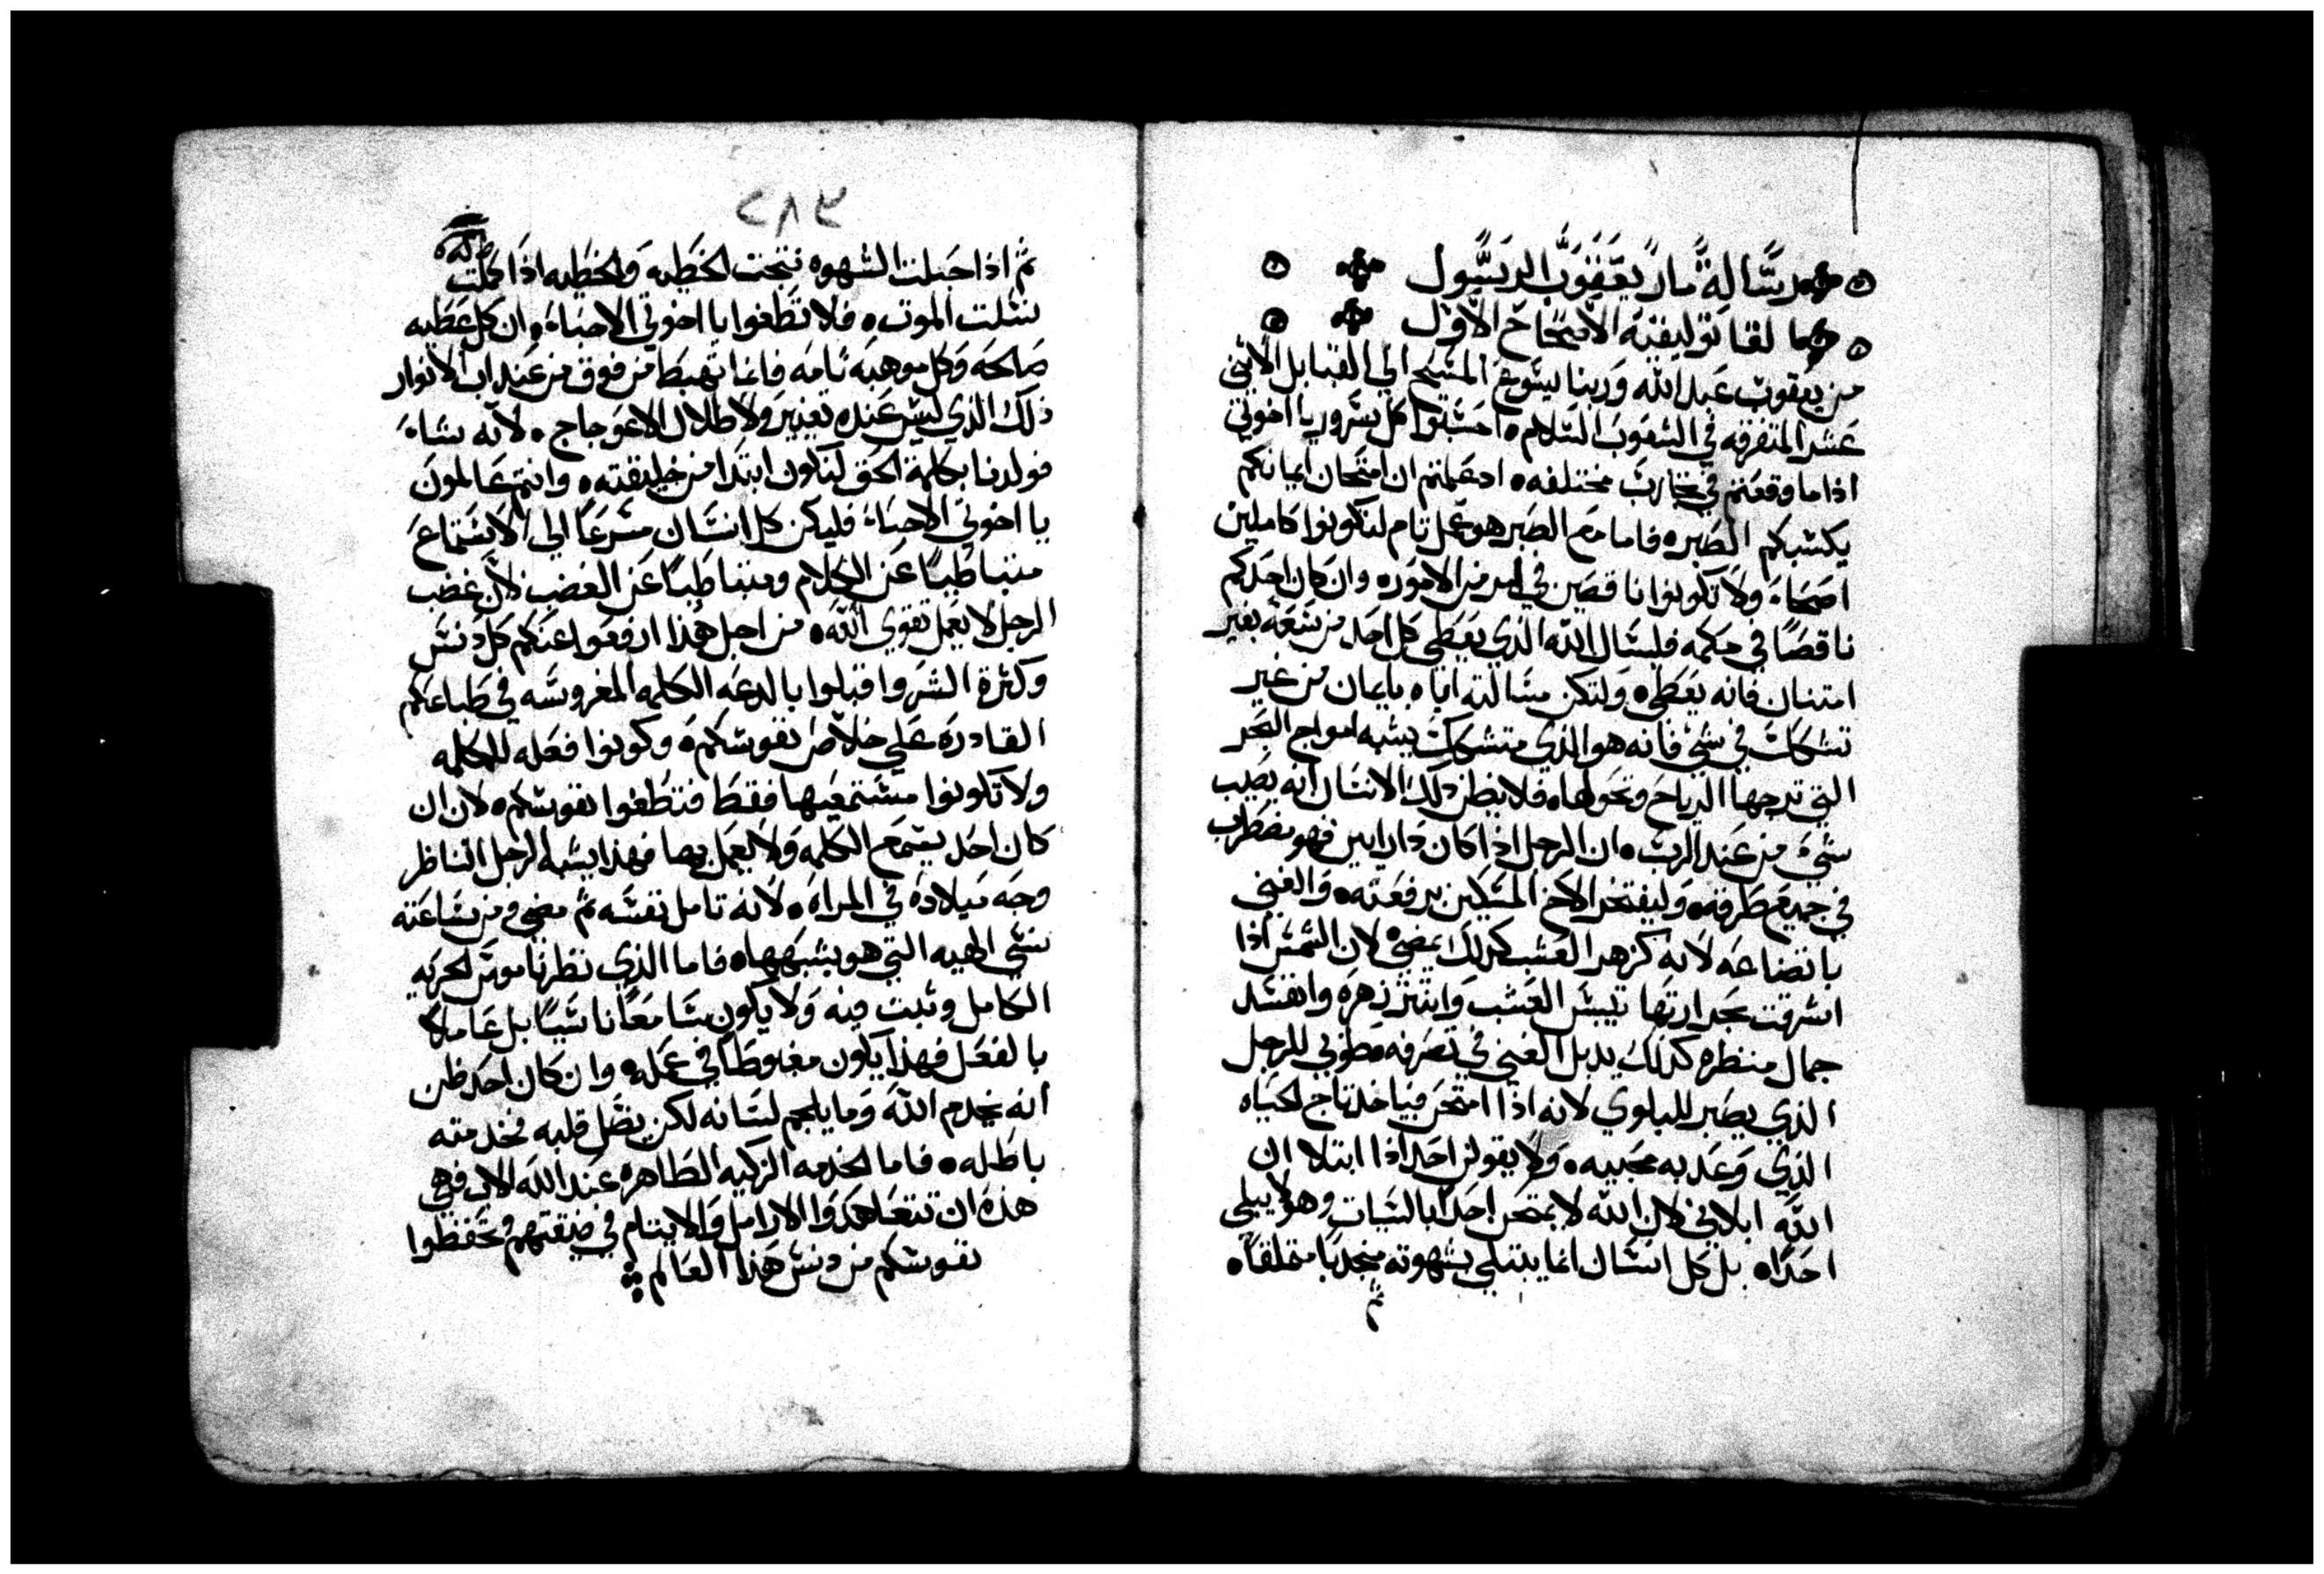 رسالة مار يعقوب الرسول
القاتوليقيه الاصحاح الاول
من يعقوب عبد الله وربنا يسوع المسيح الي القبايل الاثني
عشر المتفرقه في الشعوب السلام احسبوا كل سرور يا اخوتي
اذا ما وقعتم في تجارب مختلفه اد علمتم ان امتحان ايمانكم
يكسبكم الصبر فاما الصبر هو عمل تام لتكونوا كاملين
اصحاء ولا تكونوا ناقصين في امر من الامور وان كان احدكم
ناقصا في حكمه فليسال الله الذي يعطي كل احد من سعه بغير
امتنان فانه يعطي ولتكن مسالته اياه بايمان من غير
تشكك في شي فانه هو الذي متشكك يشبه امواج البحر
التي تزجها الرياح وتحولها فلا يظن ذلك الانسان انه يصيب
شي من عند الرب ان الرجل اذا كان ذا رايين فهو مضطرب
في جميع طرقه وليفتخر الاخ المسكين برفعته والغني
باتضاعه لانه كزهر العشب كذلك يمضي لان الشمس اذا
اشرقت بحرارتها تيبس العشب وانتثر زهره وانفسد
جمال منظره كذلك يدبل الغني في تصرفه فطوبي للرجل
الذي يصبر للبلوي لانه اذا امتحن فياخذ تاج الحياه
الذي وعد به محبيه ولا يقولن احد اذا ابتلا ان
الله ابلاني لان الله لا يمتحن احدا بالسيات وهو لا يبلي
احدا بل كل انسان انما يبتلي بشهوته منجدبا متملقا
ثم
٢٨٣
ثم اذا حبلت الشهوه نتجت الخطيه والخطيه اذا كملت
نسلت الموت فلا تطغوا يا اخوتي الاحباء ان كل عطيه
صالحه وكل موهبه تامه فانما تهبط من فوق من عند اب الانوار
ذلك الذي ليس عنده تغيير ولا ظلال الاعوجاج لانه شاء
فولدنا بكلمة الحق لنكون ابتدا من خليقته وانتم عالمون
يا اخوتي الاحباء فليكن كل انسان مسرعا الي الاستماع
متباطيا عن الكلام ومتباطيا عن الغضب لان غضب
الرجل لا يعمل تقوي الله من اجل هذا ارفعوا عنكم كل دنس
وكثرة الشر واقبلوا بالدعه الكلمه المغروسه في طباعكم
القادره علي خلاص نفوسكم وكونوا فعله للكلمه
ولا تكونوا مستمعيها فقط فتطغوا نفوسكم لان ان
كان احد يستمع الكلمه ولا يعمل بها فهذا يشبه الرجل الناظر
وجه ميلاده في المراه لانه تامل نفسه ثم مضي ومن ساعته
نسي الهيه التي هو يشبهها فاما الذي نظر ناموس الحريه
الكامل وثبت فيه ولا يكون سامعا ناسيا بل عاملا
بالفعل فهذا يكون مغبوطا في عمله وان كان احد ظن
انه يخدم الله وما يلجم لسانه لكن يضل قلبه فخدمته
باطله فاما الخدمه الزكيه الطاهره عند الله الاب فهي
هذه ان تتعاهدوا الارامل والايتام في ضيقتهم وتحفظوا
نفوسكم من دنس هذا العالم